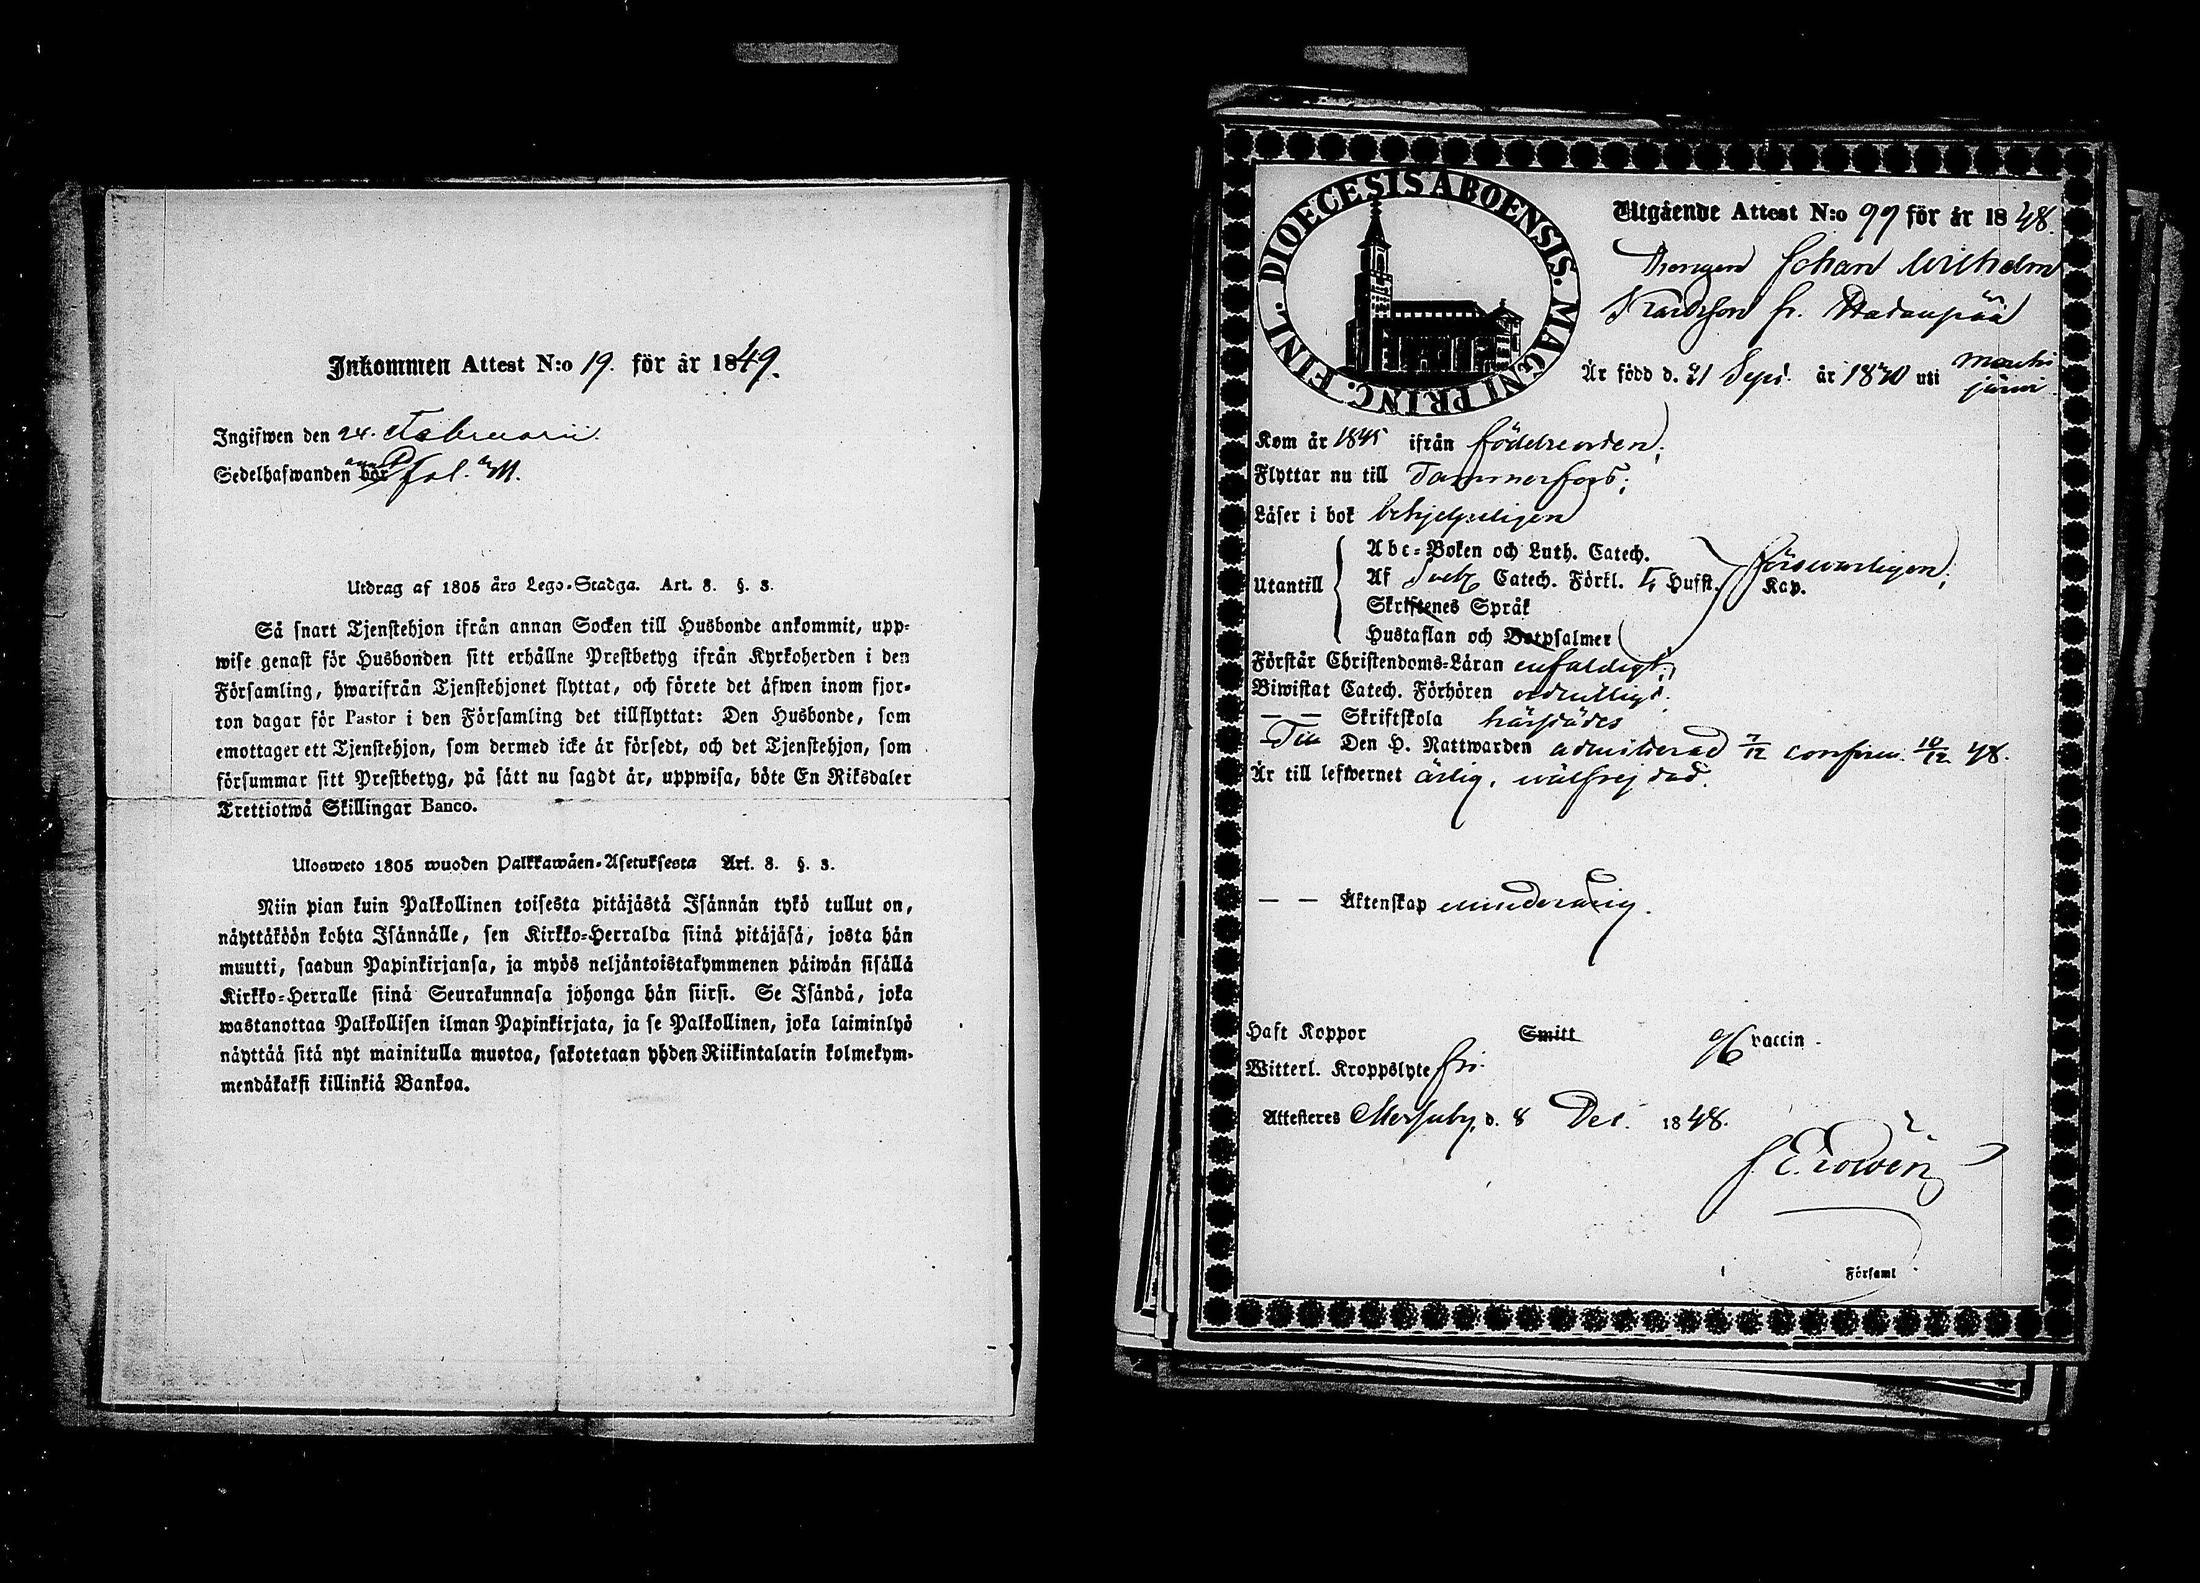 Inkommen Attest N:o 19. för år 1849.
Ingifwen den 24. Februarii.
Sedelhafwanden bör fol.
Utdrag af 1805 års Lego-Stadga. Art. 8. §. 3.
Så snart Tjenstehjon ifrån annan Socken till Husbonde ankommit, upp-
wise genast för Husbonden sitt erhållne Prestbetyg ifrån Kyrkoherden i den
Församling, hwarifrån Tjenstehjonet flyttat, och förete det äfwen inom fjor-
ton dagar för Pastor i den Församling det tillflyttat: Den Husbonde, som
emottager ett Tjenstehjon, som dermed icke är försedt, och det Tjenstehjon, som
försummar sitt Prestbetyg, på sätt nu sagdt är, uppwisa, böte En Riksdaler
Trettiotwå Skillingar Banco.
Ulosweto 1805 wuoden Palkkawäen-Asetuksesta Art. 8. §. 3.
Niin pian kuin Palkollinen toisesta pitäjästä Isännän tykö tullut on,
näyttäköön kohta Isännälle, sen Kirkko-Herralda siinä pitäjäsä, josta hän
muutti, saadun Papinkirjansa, ja myös neljäntoistakymmenen päiwän sisällä
Kirkko-Herralle siinä Seurakunnasa johonga hän siirsi. Se Isändä, joka
wastanottaa Palkollisen ilman Papinkirjata, ja se Palkollinen, joka laiminlyö
näyttää sitä nyt mainitulla muotoa, sakotetaan yhden Riikintalarin kolmekym-
mendäkaksi killinkiä Bankoa.
DIOECESIS ABOENSIS. MAGNI PRINC. FINL.
Utgående Attest N:o 99 för år 1848.
Drengen Johan Wilhelm
fr.
Är född d. 21 Sept. år 1830 uti Mouhi
järvi.
Kom år 1845 ifrån födelseorten;
Flyttar nu till Tammerfors;
Läser i bok behjelpeligen
Utantill
Abc-Boken och Luth. Catech.
Af Sveb. Catech. Förkl. Hufst. Kap. försvarligen;
Skriftenes Språk
Hustaflan och Botpsalmer
Förstår Christendoms-Läran enfaldigt;
Biwistat Catech. Förhören ordentligt.
— — Skriftskola härstädes
— Till Den H. Nattwarden admitterad 7/12 confirm. 10/12 48.
Är till lefwernet ärlig, wälfrejdad.
— — Äktenskap minderårig.
Haft Koppor Smitt vaccin.
Witterl. Kroppslyte fri.
Attesteres d. 8 Dec. 1848.
Församl